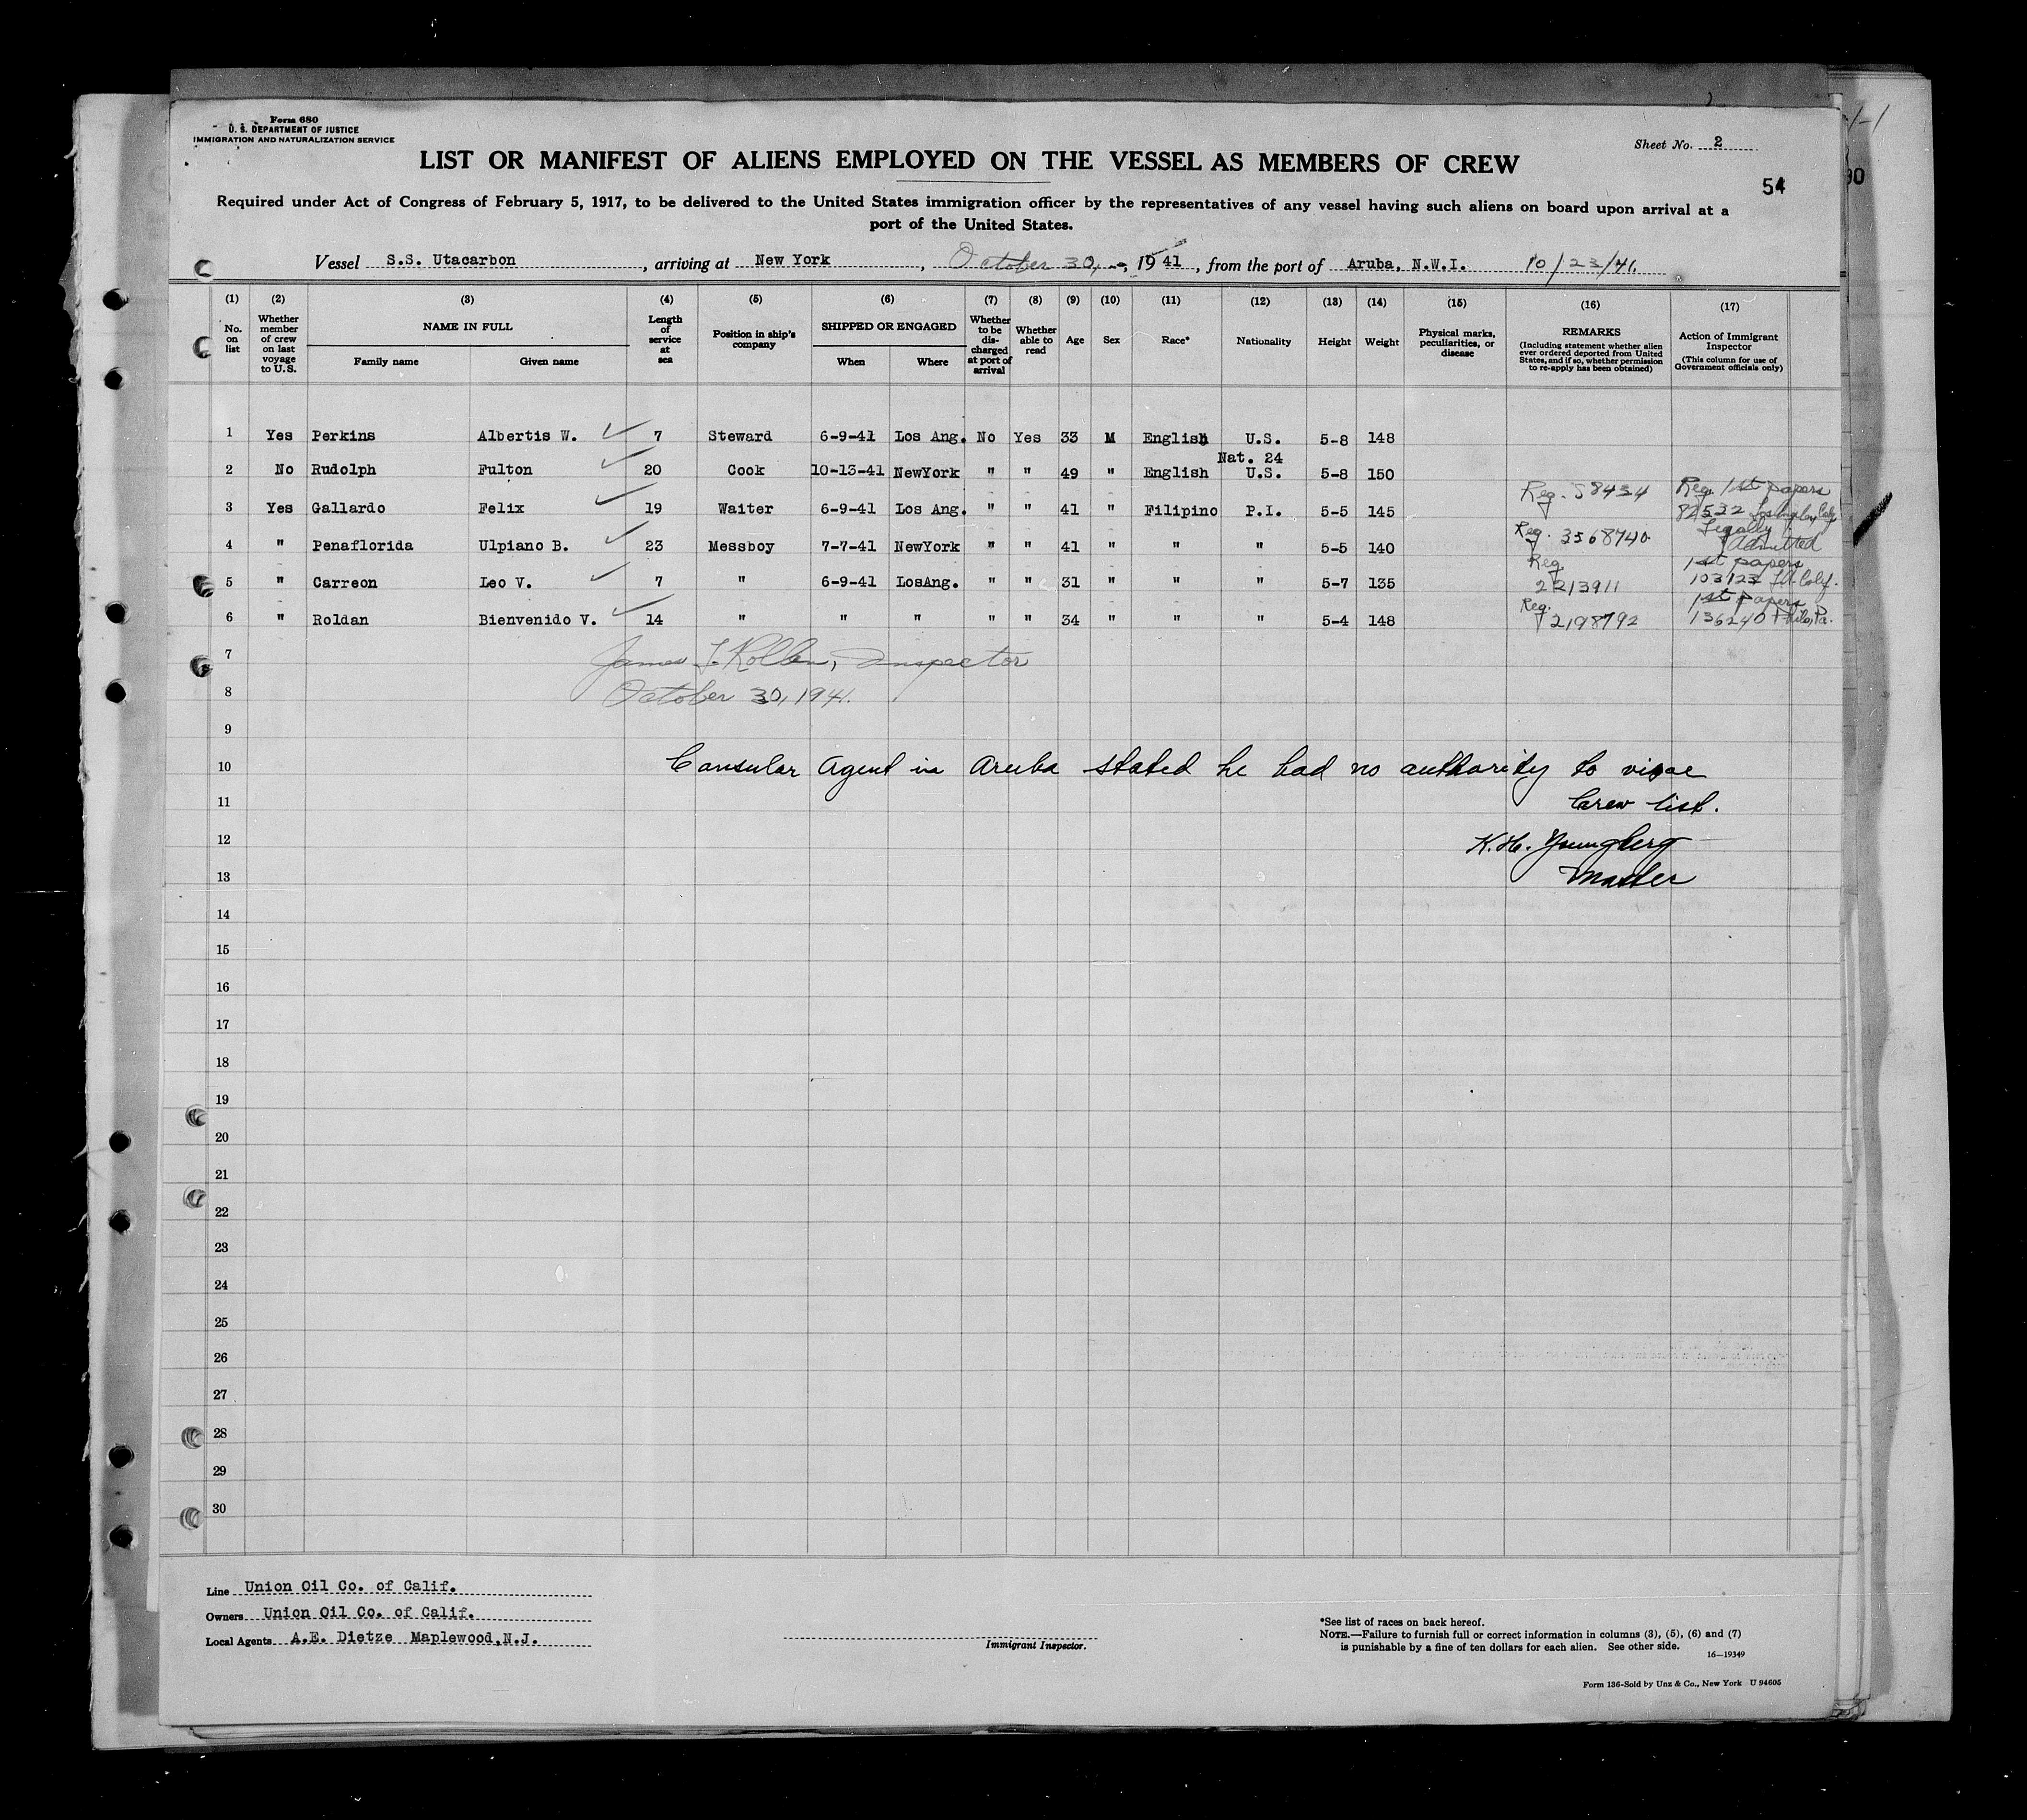 Form 680
U. S. DEPARTMENT OF JUSTICE
IMMIGRATION AND NATURALIZATION SERVICE
Sheet No. 2
LIST OR MANIFEST OF ALIENS EMPLOYED ON THE VESSEL AS MEMBERS OF CREW
54
90
Required under Act of Congress of February 5, 1917, to be delivered to the United States immigration officer by the representatives of any vessel having such aliens on board upon arrival at a
port of the United States.
Vessel S.S. Utacarbon, arriving at New York, October 30, 1941, from the port of Aruba, N.W.I. 10/23/41.
(1) (2) (3) (4) (5) (6) (7) (8) (9) (10) (11) (12) (13) (14) (15) (16) (17)
No. on list
Whether member of crew on last voyage to U.S.
NAME IN FULL
Family name Given name
Length of service at sea
Position in ship's company
SHIPPED OR ENGAGED
When Where
Whether to be discharged at port of arrival
Whether able to read
Age
Sex
Race*
Nationality
Height
Weight
Physical marks, peculiarities, or disease
REMARKS
(Including statement whether alien ever ordered deported from United States, and if so, whether permission to re-apply has been obtained)
Action of Immigrant Inspector
(This column for use of Government officials only)
1 Yes Perkins Albertis W. 7 Steward 6-9-41 Los Ang. No Yes 33 M English U.S. 5-8 148
Nat. 24
2 No Rudolph Fulton 20 Cook 10-13-41 NewYork " " 49 " English U.S. 5-8 150
3 Yes Gallardo Felix 19 Waiter 6-9-41 Los Ang. " " 41 " Filipino P.I. 5-5 145 Reg. 58434 Reg. 1st papers 82532
4 " Penaflorida Ulpiano B. 23 Messboy 7-7-41 NewYork " " 41 " " " 5-5 140 Reg. 3568740 Legally Admitted
5 " Carreon Leo V. 7 " 6-9-41 LosAng. " " 31 " " " 5-7 135 Reg 2213911 1st papers 103123 LA Calif.
6 " Roldan Bienvenido V. 14 " " " " " 34 " " " 5-4 148 Reg. 2198792 1st papers 136240 Phila, Pa.
7
James Inspector
8
October 30, 1941.
9
10
Consular Agent in Aruba stated he had no authority to visae
11
Crew list.
12
K.H. Youngberg
13
Master
14
15
16
17
18
19
20
21
22
23
24
25
26
27
28
29
30
Line Union Oil Co. of Calif.
Owners Union Oil Co. of Calif.
Local Agents A.E. Dietze Maplewood, N.J.
Immigrant Inspector.
*See list of races on back hereof.
NOTE.—Failure to furnish full or correct information in columns (3), (5), (6) and (7)
is punishable by a fine of ten dollars for each alien. See other side.
16—19349
Form 136-Sold by Unz & Co., New York U 94605